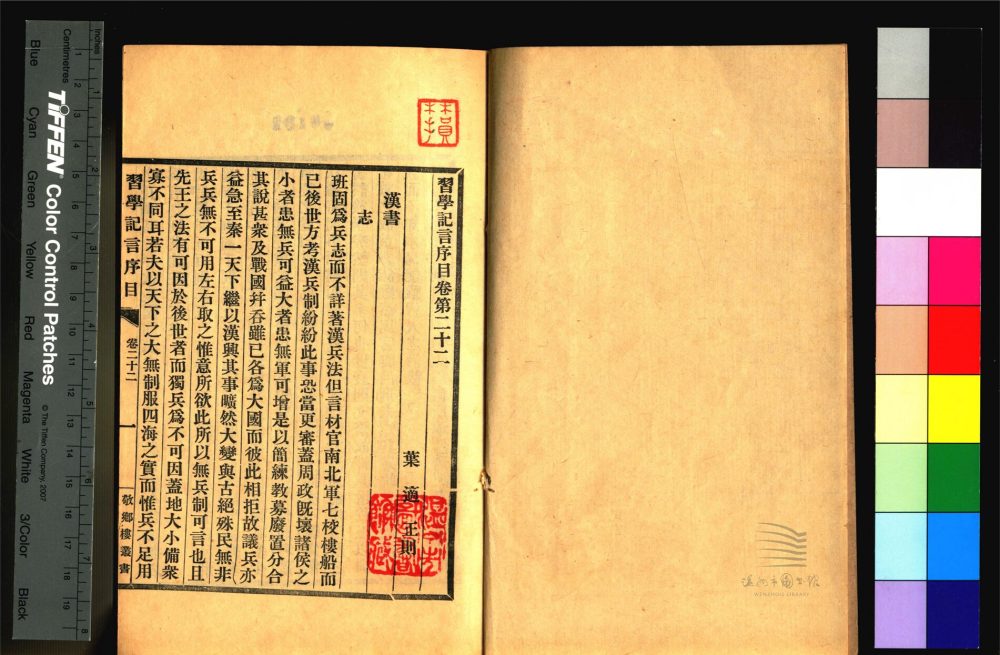 習學記言序目卷第二十二
葉適 正則
漢書
志
班固爲兵志而不詳著漢兵法但言材官南北軍七校樓船而
已後世方考漢兵制紛紛此事恐當更審蓋周政旣壞諸侯之
小者患無兵可益大者患無軍可增是以簡練教募廢置分合
其說甚衆及戰國幷吞雖已各爲大國而彼此相拒故議兵亦
益急至秦一天下繼以漢興其事曠然大變與古絕殊民無非
兵兵無不可用左右取之惟意所欲此所以無兵制可言也且
先王之法有可因於後世者而獨兵爲不可因蓋地大小備衆
寡不同耳若夫以天下之大無制服四海之實而惟兵不足用
習學記言序目
卷二十二
一
敬鄉樓叢書
Inches
Centimetres
1 2 3 4 5 6 7 8
1 2 3 4 5 6 7 8 9 10 11 12 13 14 15 16 17 18 19
TIFFEN® Color Control Patches
© The Tiffen Company, 2007
Blue Cyan Green Yellow Red Magenta White 3/Color Black
温州市圖书馆
WENZHOU LIBRARY